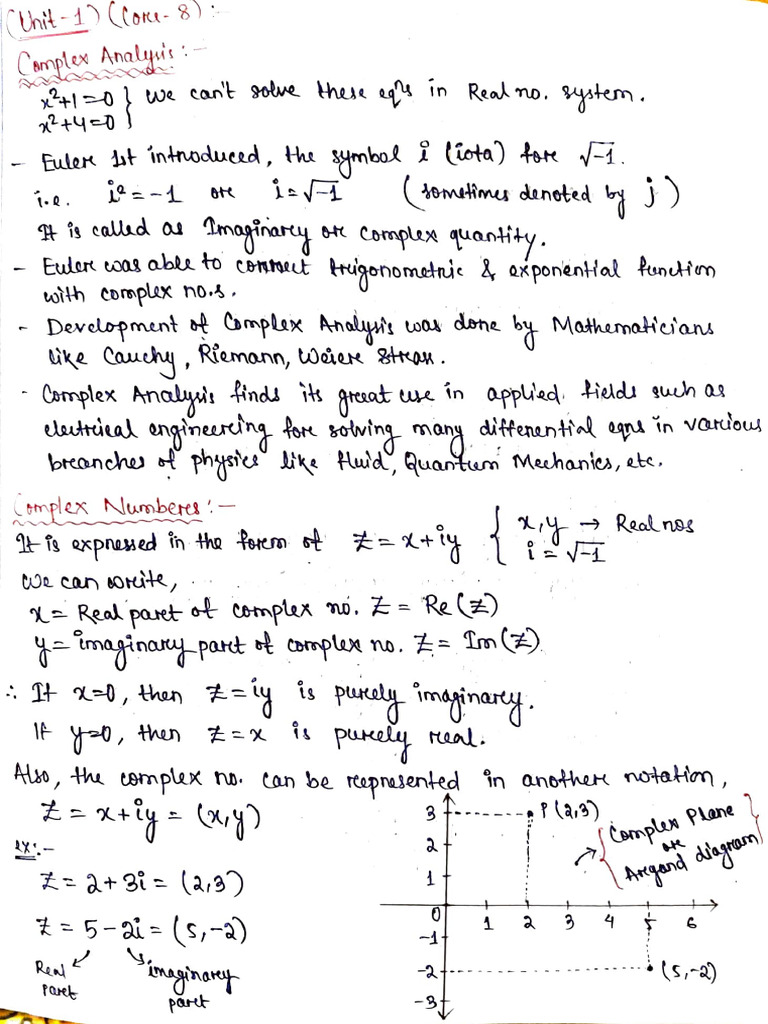 (Unit-1) (Core-8) :-
Complex Analysis :-
x²+1=0 } We can't solve these eqⁿs in Real no. system.
x²+4=0
- Euler 1st introduced, the symbol i (iota) for √-1.
i.e. i² = -1 or i = √-1 (sometimes denoted by j)
It is called as Imaginary or complex quantity.
- Euler was able to connect trigonometric & exponential function
with complex no.s.
- Development of Complex Analysis was done by Mathematicians
like Cauchy, Riemann, Weier Stras.
- Complex Analysis finds its great use in applied fields such as
electrical engineering for solving many differential eqns in various
branches of physics like fluid, Quantum Mechanics, etc.
Complex Numbers :-
It is expressed in the form of Z = x + iy { x, y → Real nos
i = √-1
We can write,
x = Real part of complex no. Z = Re(Z)
y = imaginary part of complex no. Z = Im(Z)
∴ If x=0, then Z = iy is purely imaginary.
If y=0, then Z = x is purely real.
Also, the complex no. can be represented in another notation,
Z = x + iy = (x, y)
Ex:-
Z = 2 + 3i = (2, 3)
Z = 5 - 2i = (5, -2)
Real imaginary
part part
3 P(2,3)
2
1
0 1 2 3 4 5 6
-1
-2 (5,-2)
-3
Complex Plane
or
Argand diagram